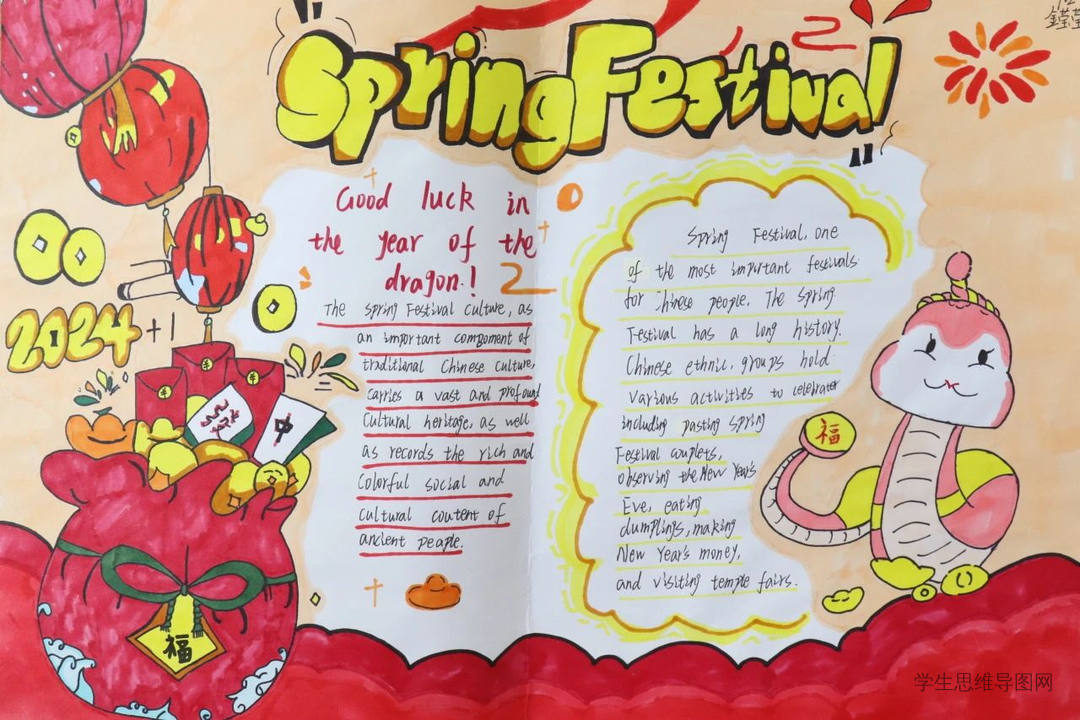 Spring Festival
Good luck in
the year of the
dragon!
The Spring Festival culture, as
an important compoment of
traditional Chinese culture,
carries a vast and profound
cultural heritage, as well
as records the rich and
Colorful social and
cultural coutent of
ancient peaple.
Spring Festival, one
of the most important festivals
for Chinese people. The Spring
Festival has a long history.
Chinese ethnic, groups hold
various activities to celebrate
including pasting Spring
Festival couplets,
observing the New Year's
Eve, eating
dumplings, making
New Year's money,
and visiting temple fairs.
2024+1
中
福
福
学生思维导图网